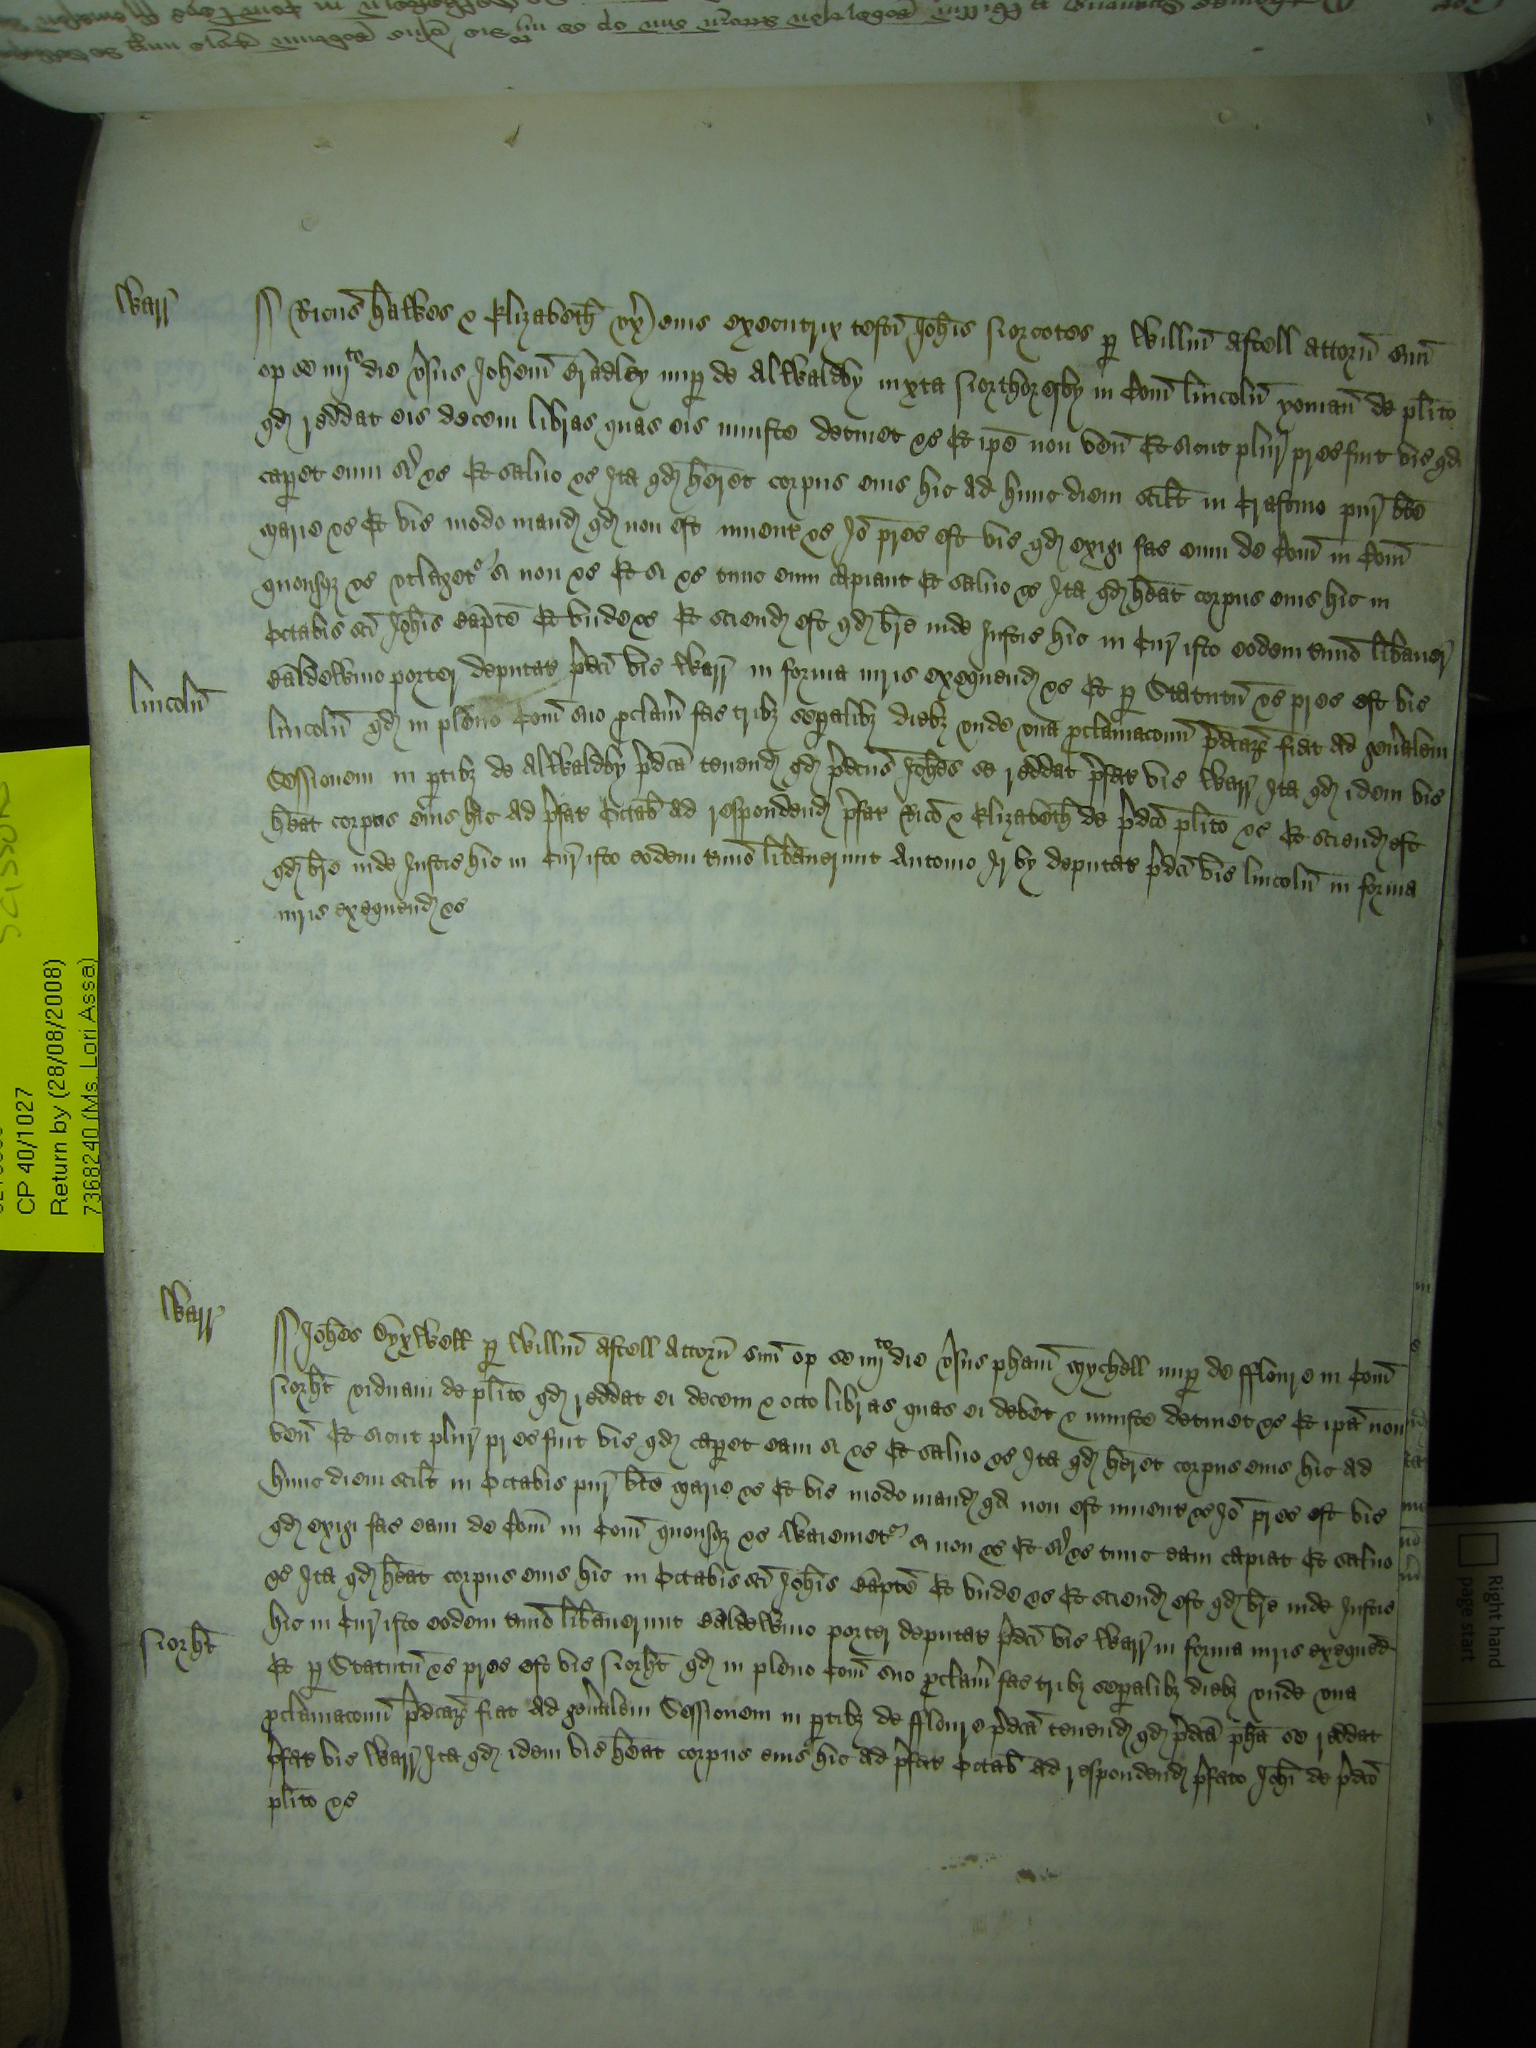 Warr
Ricus hawkes & Elizabeth ux eius executrix testi Johis Norcotes p Willm Astell attorn suu
op se iiijto die vsus Johem Bradley nup de Alwaldby iuxta Northoresby in Com Lincoln yoman de plito
qd reddat eis decem libras quas eis iniuste detinet &c Et ipe non ven Et sicut plur prec fuit vic qd
caperet eum si &c Et salvo &c Ita qd heret corpus eius hic ad hunc diem scilt in Crastino pur bte
Marie &c Et vic modo mand qd non est invent &c Io prec est vic qd exigi fac eum de Com in Com
quousqz &c utlaget si non &c Et si &c tunc eum capiant Et salvo &c Ita qd heat corpus eius hic in
Octabis sci Johis bapte Et unde &c Et sciend est qd bre inde Justic hic in Cur isto eodem tmio libaver
Baldewino porter deputat pdci vic Warr in forma iuris exequend &c Et p Statutu &c prec est vic
Lincoln
Lincoln qd in pleno Com suo pclam fac tribz sepalibz diebz unde una pclamaconu pdcaz fiat ad genalem
Sessionem in ptibz de Alwaldby pdca tenend qd pdcus Johes se reddat pfat vic Warr Ita qd idem vic
heat corpus eius hic ad pfat Octab ad respondend pfat Rico & Elizabeth de pdco plito &c Et sciend est
qd bre inde Justic hic in Cur isto eodem tmio libaverunt Antonio Irby deputat pdci vic Lincoln in forma
iuris exequend &c
Warr
Johes Oxwell p Willm Astell Attorn suu op se iiijto die vsus pham Mychell nup de fflore in Com
Norht viduam de plito qd reddat ei decem & octo libras quas ei debet & iniuste detinet &c Et ipa non
ven Et sicut plur prec fuit vic qd caperet eam si &c Et salvo &c Ita qd heret corpus eius hic ad
hunc diem scilt in Octabis pur bte Marie &c Et vic modo mand qd non est invent &c Io prec est vic
qd exigi fac eam de Com in Com quousqz &c Waiviet si non &c Et si &c tunc eam capiat Et salvo
&c Ita qd heat corpus eius hic in Octabis sci Johis Bapte Et unde &c Et sciend est qd bre inde Justic
hic in Cur isto eodem tmio libaverunt Baldewino porter deputat pdci vic Warr in forma iuris exequend
Norht
Et p Statutu &c prec est vic Norht qd in pleno Com suo pclam fac tribz sepalibz diebz unde una
pclamaconu pdcaz fiat ad genalem Sessionem in ptibz de fflore pdca tenend qd pdca pha se reddat
pfat vic Warr Ita qd idem vic heat corpus eius hic ad pfat Octab ad respondend pfato Johi de pdco
plito &c
CP 40/1027
Return by (28/08/2008)
7368240 (Ms. Lori Assa)
Right hand
page start